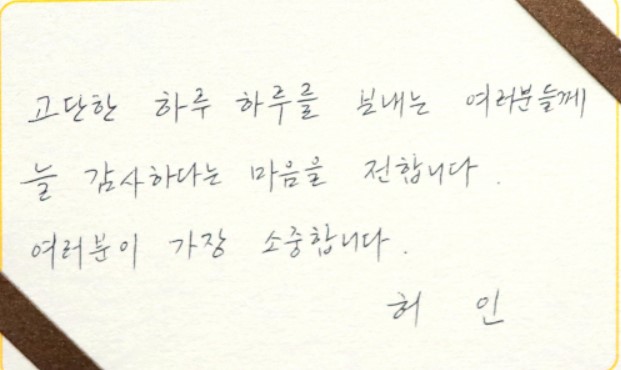 고단한 하루 하루를 보내는 여러분들께
늘 감사하다는 마음을 전합니다.
여러분이 가장 소중합니다.
허 인